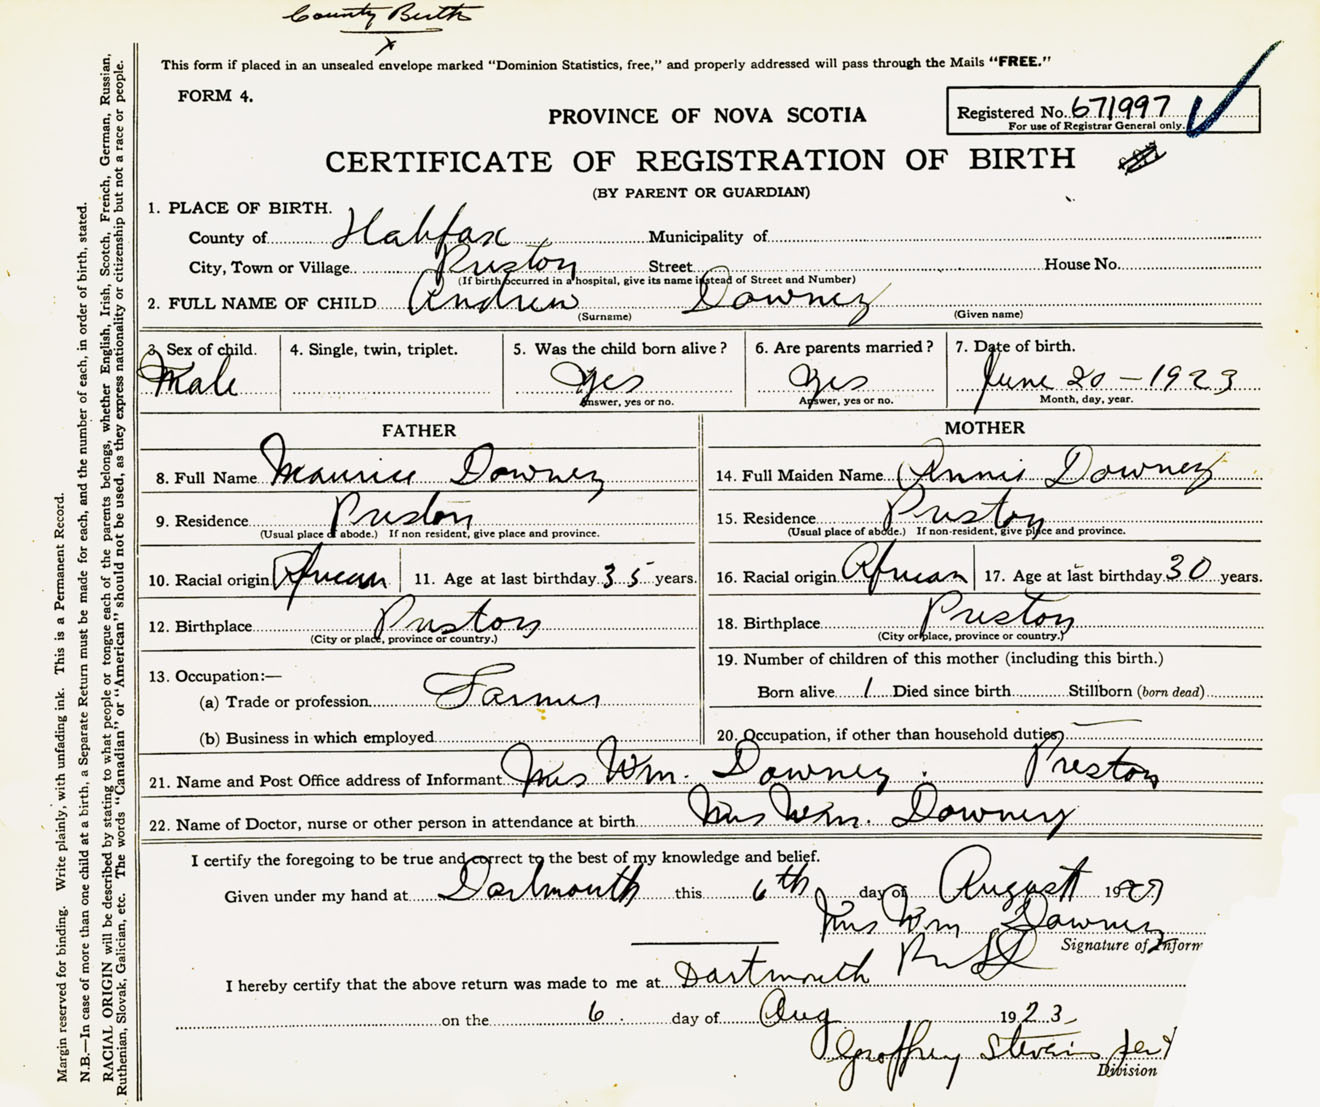 County Birth
x
This form if placed in an unsealed envelope marked "Dominion Statistics, free," and properly addressed will pass through the Mails "FREE."
FORM 4.
PROVINCE OF NOVA SCOTIA
Registered No. 671997
For use of Registrar General only.
CERTIFICATE OF REGISTRATION OF BIRTH
(BY PARENT OR GUARDIAN)
1. PLACE OF BIRTH.
County of Halifax Municipality of
City, Town or Village Preston Street House No.
(If birth occurred in a hospital, give its name instead of Street and Number)
2. FULL NAME OF CHILD Andrew Downey
(Surname) (Given name)
3. Sex of child. 4. Single, twin, triplet. 5. Was the child born alive? 6. Are parents married? 7. Date of birth.
Male Yes Yes June 20 - 1923
Answer, yes or no. Answer, yes or no. Month, day, year.
FATHER MOTHER
8. Full Name Maurice Downey 14. Full Maiden Name Annie Downey
9. Residence Preston 15. Residence Preston
(Usual place of abode.) If non resident, give place and province. (Usual place of abode.) If non-resident, give place and province.
10. Racial origin African 11. Age at last birthday 35 years. 16. Racial origin African 17. Age at last birthday 30 years.
12. Birthplace Preston 18. Birthplace Preston
(City or place, province or country.) (City or place, province or country.)
13. Occupation:— 19. Number of children of this mother (including this birth.)
(a) Trade or profession Farmer Born alive 1 Died since birth Stillborn (born dead)
(b) Business in which employed 20. Occupation, if other than household duties
21. Name and Post Office address of Informant Mrs Wm. Downey. Preston
22. Name of Doctor, nurse or other person in attendance at birth Mrs Wm. Downey
I certify the foregoing to be true and correct to the best of my knowledge and belief.
Given under my hand at Dartmouth this 6th day of August 19
Mrs Wm Downey
Signature of Inform
I hereby certify that the above return was made to me at Dartmouth
on the 6. day of Aug 1923
Geoffrey Stevens
Division
Margin reserved for binding. Write plainly, with unfading ink. This is a Permanent Record.
N.B.—In case of more than one child at a birth, a Separate Return must be made for each, and the number of each, in order of birth, stated.
RACIAL ORIGIN will be described by stating to what people or tongue each of the parents belongs, whether English, Irish, Scotch, French, German, Russian,
Ruthenian, Slovak, Galician, etc. The words "Canadian" or "American" should not be used, as they express nationality or citizenship but not a race or people.